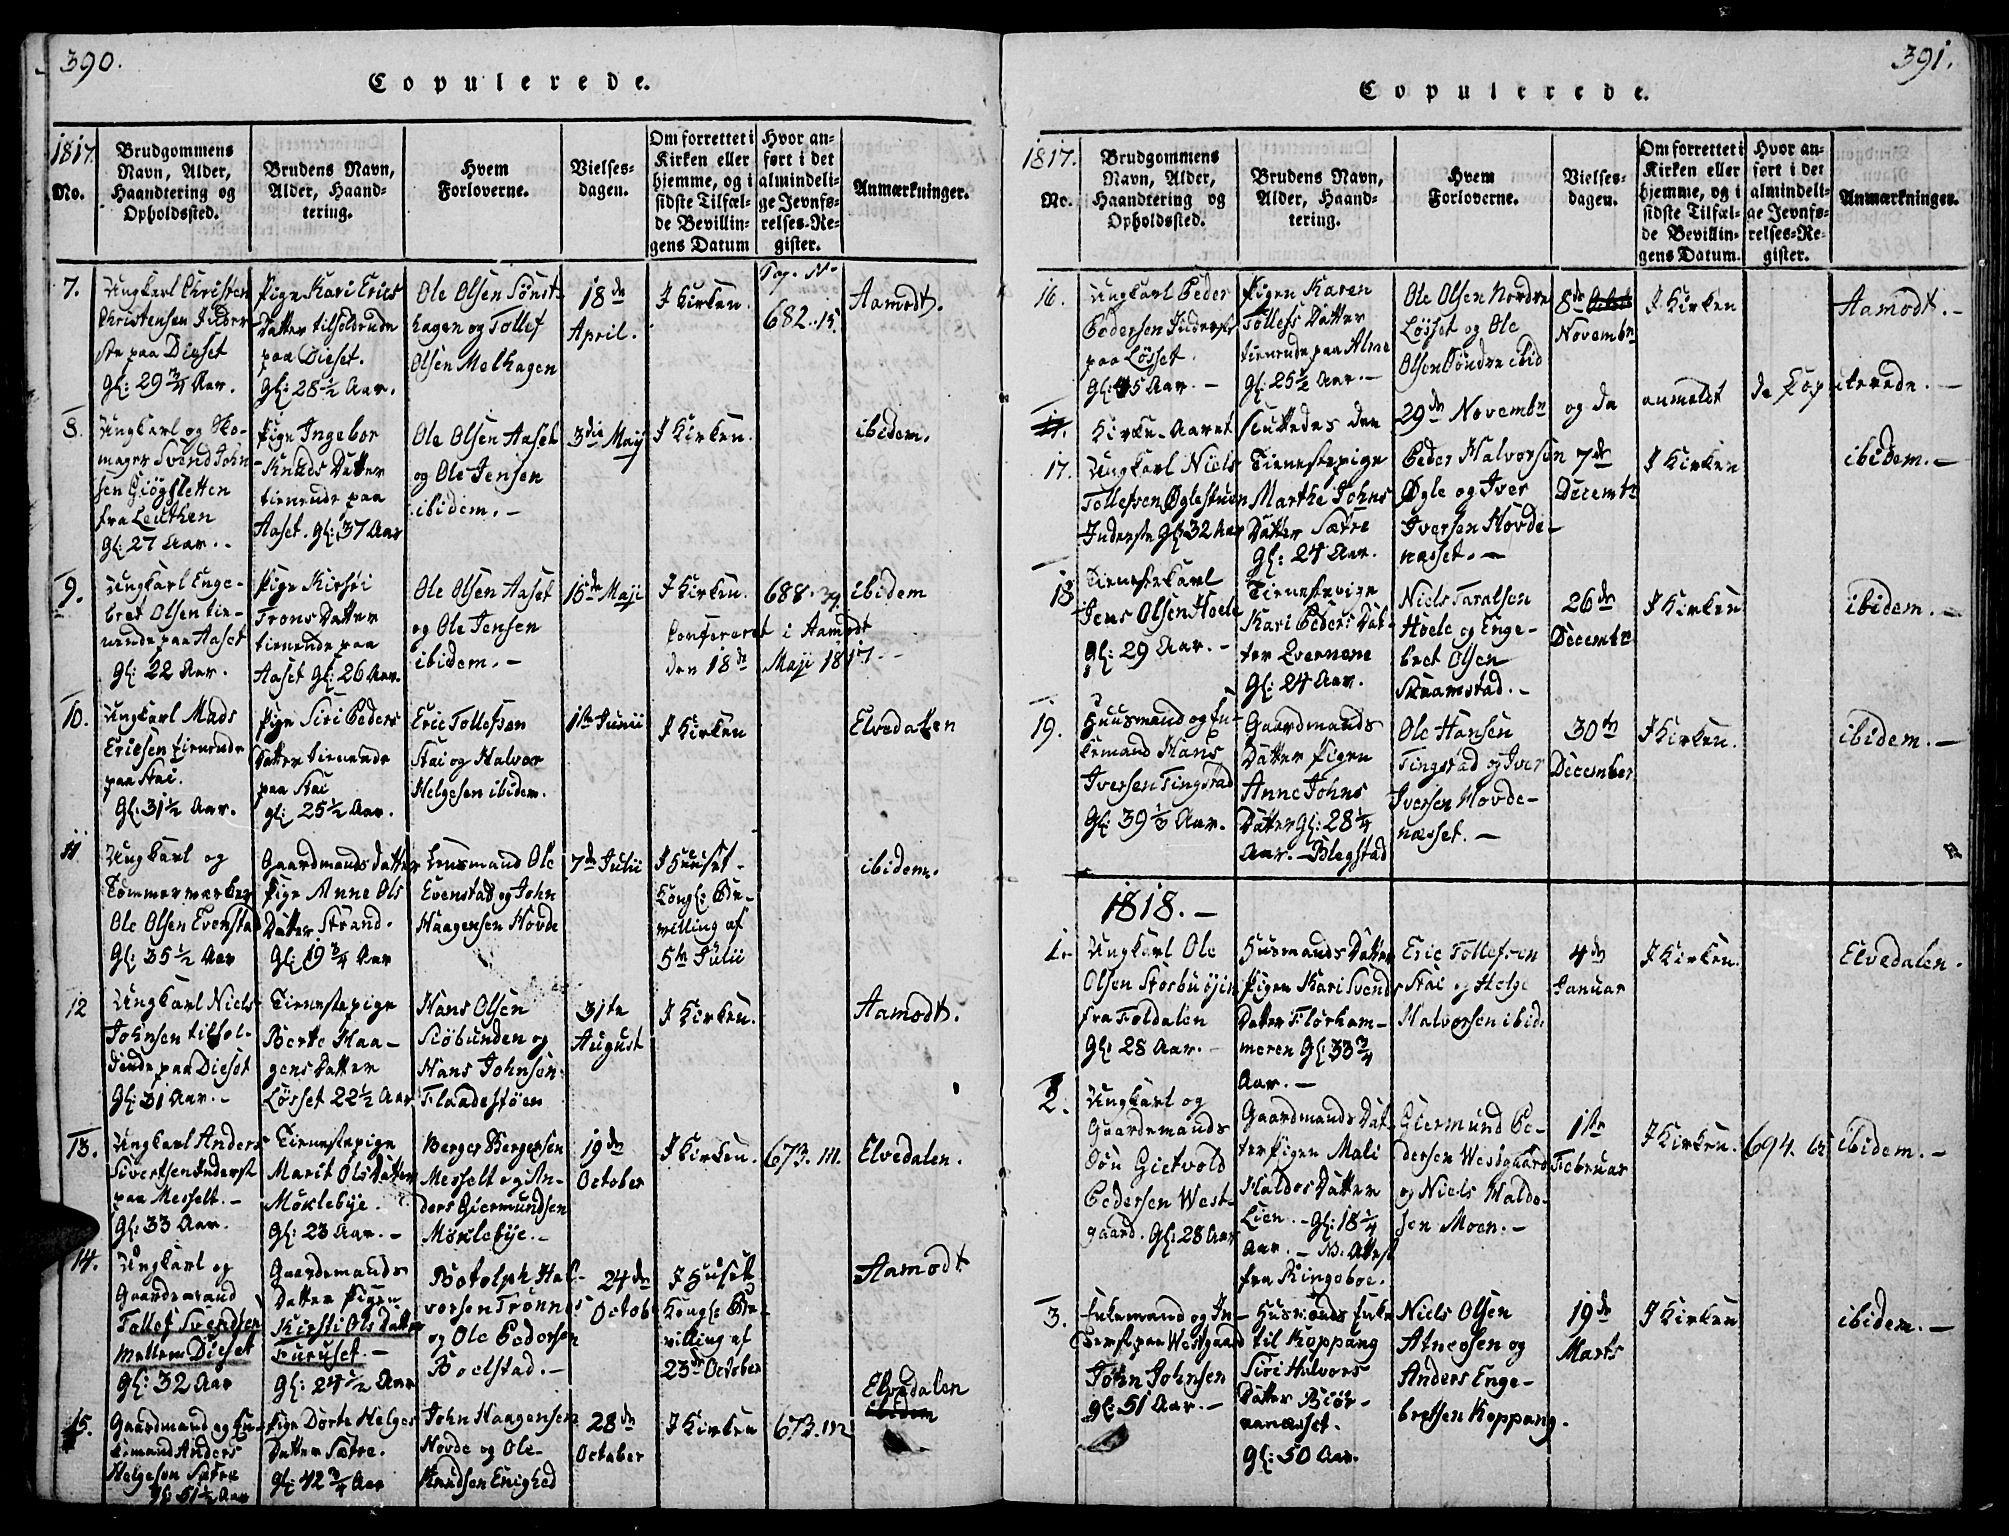 390.
Copulerede.
1817.
No.
Brudgommens
Navn, Alder,
Haandtering og
Opholdssted.
Brudens Navn,
Alder, Haand-
tering.
Hvem
Forloverne.
Vielses-
dagen.
Om forrettet i
Kirken eller
hjemme, og i
sidste Tilfæl-
de Bevillin-
gens Datum
Hvor an-
ført i det
almindeli-
ge Jevnfø-
relses-Re-
gister.
Anmærkninger.
7.
Ungkarl Christen
Christensen Inder-
ste paa Dieset
Gl: 29 3/4 Aar.
Pige Kari Erics
Datter tilholdende
paa Dieset.
Gl: 28 1/2 Aar.
Ole Olsen Sönst-
hagen og Tollef
Olsen Melhagen
18de
April.
I Kirken.
Pag. No
682. 15.
Aamodt.
8.
Ungkarl og Sko-
mager Svend John-
sen Giögsletten
fra Leuthen
Gl: 27 Aar.
Pige Ingebor
Knuds Datter
tienende paa
Aaset. Gl: 37 Aar
Ole Olsen Aaset
og Ole Jensen
ibidem.
3die Maij
I Kirken.
ibidem.
9.
Ungkarl Enge-
bret Olsen tie-
nende paa Aaset
Gl: 22 Aar.
Pige Kirsti
Trons Datter
tienende paa
Aaset Gl: 26 Aar.
Ole Olsen Aaset
og Ole Jensen
ibidem.
15de Maji
I Kirken.
688. 39.
ibidem
Confereret i Aamodt
den 18de Maji 1817.
10.
Ungkarl Mads
Ericsen tienende
paa Stai.
Gl: 31 1/2 Aar.
Pige Siri Peders
Datter tienende
paa Stai
gl: 25 1/2 Aar.
Eric Tollefsen
Stai og Halvor
Helgesen ibidem.
1ste Junii
I Kirken
Elvedalen
11
Ungkarl og
Tømmermerker
Ole Olsen Evenstad
Gl: 35 1/2 Aar
Gaardmands Datter
Pige Anne Ols
Datter Strand.
Gl: 19 3/4 Aar
Lensmand Ole
Evenstad og John
Haagensen Hovde
7de Julii
I Huuset
Kongl: Be-
villing af
5te Julii
ibidem.
12
Ungkarl Niels
Johnsen tilhol-
dende paa Dieset
Gl: 31 Aar.
Tienestepige
Berte Haa-
gens Datter
Løsset 22 1/2 Aar
Hans Olsen
Siöbunden og
Hans Johnsen
Flaadestöen
31te
August
I Kirken.
Aamodt.
13.
Ungkarl Anders
Sivertsen Inderst
paa Messelt.
Gl: 33 Aar.
Tienestepige
Marit Ols Datter
Møklebye.
Gl: 23 Aar.
Berger Bergersen
Messelt og An-
ders Giermundsen
Møklebye.
19de
October
I Kirken.
673. m.
Elvedalen.
14.
Ungkarl og
Gaardemand
Tollef Svendsen
Mellem Dieset
Gl: 32 Aar
Gaardemands
Datter Pigen
Kirsti Ols Datter
Furuset.
Gl: 24 1/2 Aar
Botolph Hal-
vorsen Trönnes
og Ole Pedersen
Bolstad.
24de
October
I Huset
Kongl: Be-
villing af
23de October
Aamodt
15.
Gaardmand og En-
kemand Anders
Helgesen Sætre
gl: 51 1/2 Aar
Pige Dorte Helges
Datter Sætre.
gl: 42 3/4 Aar
John Haagensen
Hovde og Ole
Knudsen Enighed
28de
October
I Kirken
673. m
Elvedalen
ibidem
391.
Copulerede.
1817.
No.
Brudgommens
Navn, Alder,
Haandtering og
Opholdssted.
Brudens Navn,
Alder, Haand-
tering.
Hvem
Forloverne.
Vielses-
dagen.
Om forrettet i
Kirken eller
hjemme, og i
sidste Tilfæl-
de Bevillin-
gens Datum.
Hvor an-
ført i det
almindeli-
ge Jevnfø-
relses-Re-
gister.
Anmærkninger.
16.
Ungkarl Peder
Pedersen Inderst
paa Løsset.
Gl: 45 Aar.
Pigen Karen
Tollefs Datter
tienende paa Alme
Gl: 25 1/2 Aar.
Ole Olsen Nordre
Løsset og Ole
Olsen Söndre ibid
8de
Novembr
I Kirken
Aamodt.
Kirke-Aaret sluttedes den 29de Novembr og da anmeldt de Copulerede.
17.
Ungkarl Niels
Tollefsen Øglestuen
Inderste Gl: 32 Aar
Tienestepige
Marthe Johns
Datter Sætre
Gl: 24 Aar.
Peder Halvorsen
Øgle og Iver
Iversen Hovde-
næsset.
7de
Decembr
I Kirken
ibidem.
18
Tienestekarl
Jens Olsen Hoele
Gl: 29 Aar.
Tienestepige
Kari Peders Dat-
ter Qvernene
Gl: 24 Aar.
Niels Taralsen
Hoele og Enge-
bret Olsen
Skramstad.
26de
Decembr
I Kirken
ibidem.
19.
Huusmand og En-
kemand Hans
Iversen Tingstad
Gl: 39 1/3 Aar.
Gaardmands
Datter Pigen
Anne Johns
Datter gl: 28 1/4
Aar. Blegstad
Ole Hansen
Tingstad og Iver
Iversen Hovde-
næsset.
30te
December
I Kirken.
ibidem.
1818.
1.
Ungkarl Ole
Olsen Storbuöjen
fra Foldalen
Gl: 28 Aar.
Husmands Datter
Pigen Kari Svends
Datter Flörham-
meren Gl: 33 3/4
Aar.
Eric Tollefsen
Stai og Helge
Halvorsen ibid:
4de
Januar
I Kirken.
Elvedalen.
2.
Ungkarl og
Gaardemands
Søn Gietvold
Pedersen West-
gaard. Gl: 28 Aar
Gaardmands Dat-
ter Pigen Mali
Haldos Datter
Lien. Gl: 18 1/4
Aar. Attest
fra Ringeboe.
Giermund Pe-
dersen Westgaard
og Niels Haldo-
sen Moen.
1ste
Februar
I Kirken.
694.
ibidem.
3.
Enkemand og In-
derst paa Westgaard
John Johnsen
gl: 51 Aar.
Husmands Enke
til Koppang
Siri Halvors
Datter Biör-
nanæsset.
Gl: 50 Aar.
Niels Olsen
Atneosen og
Anders Enge-
bretsen Koppang.
19de
Marts
I Kirken
ibidem.